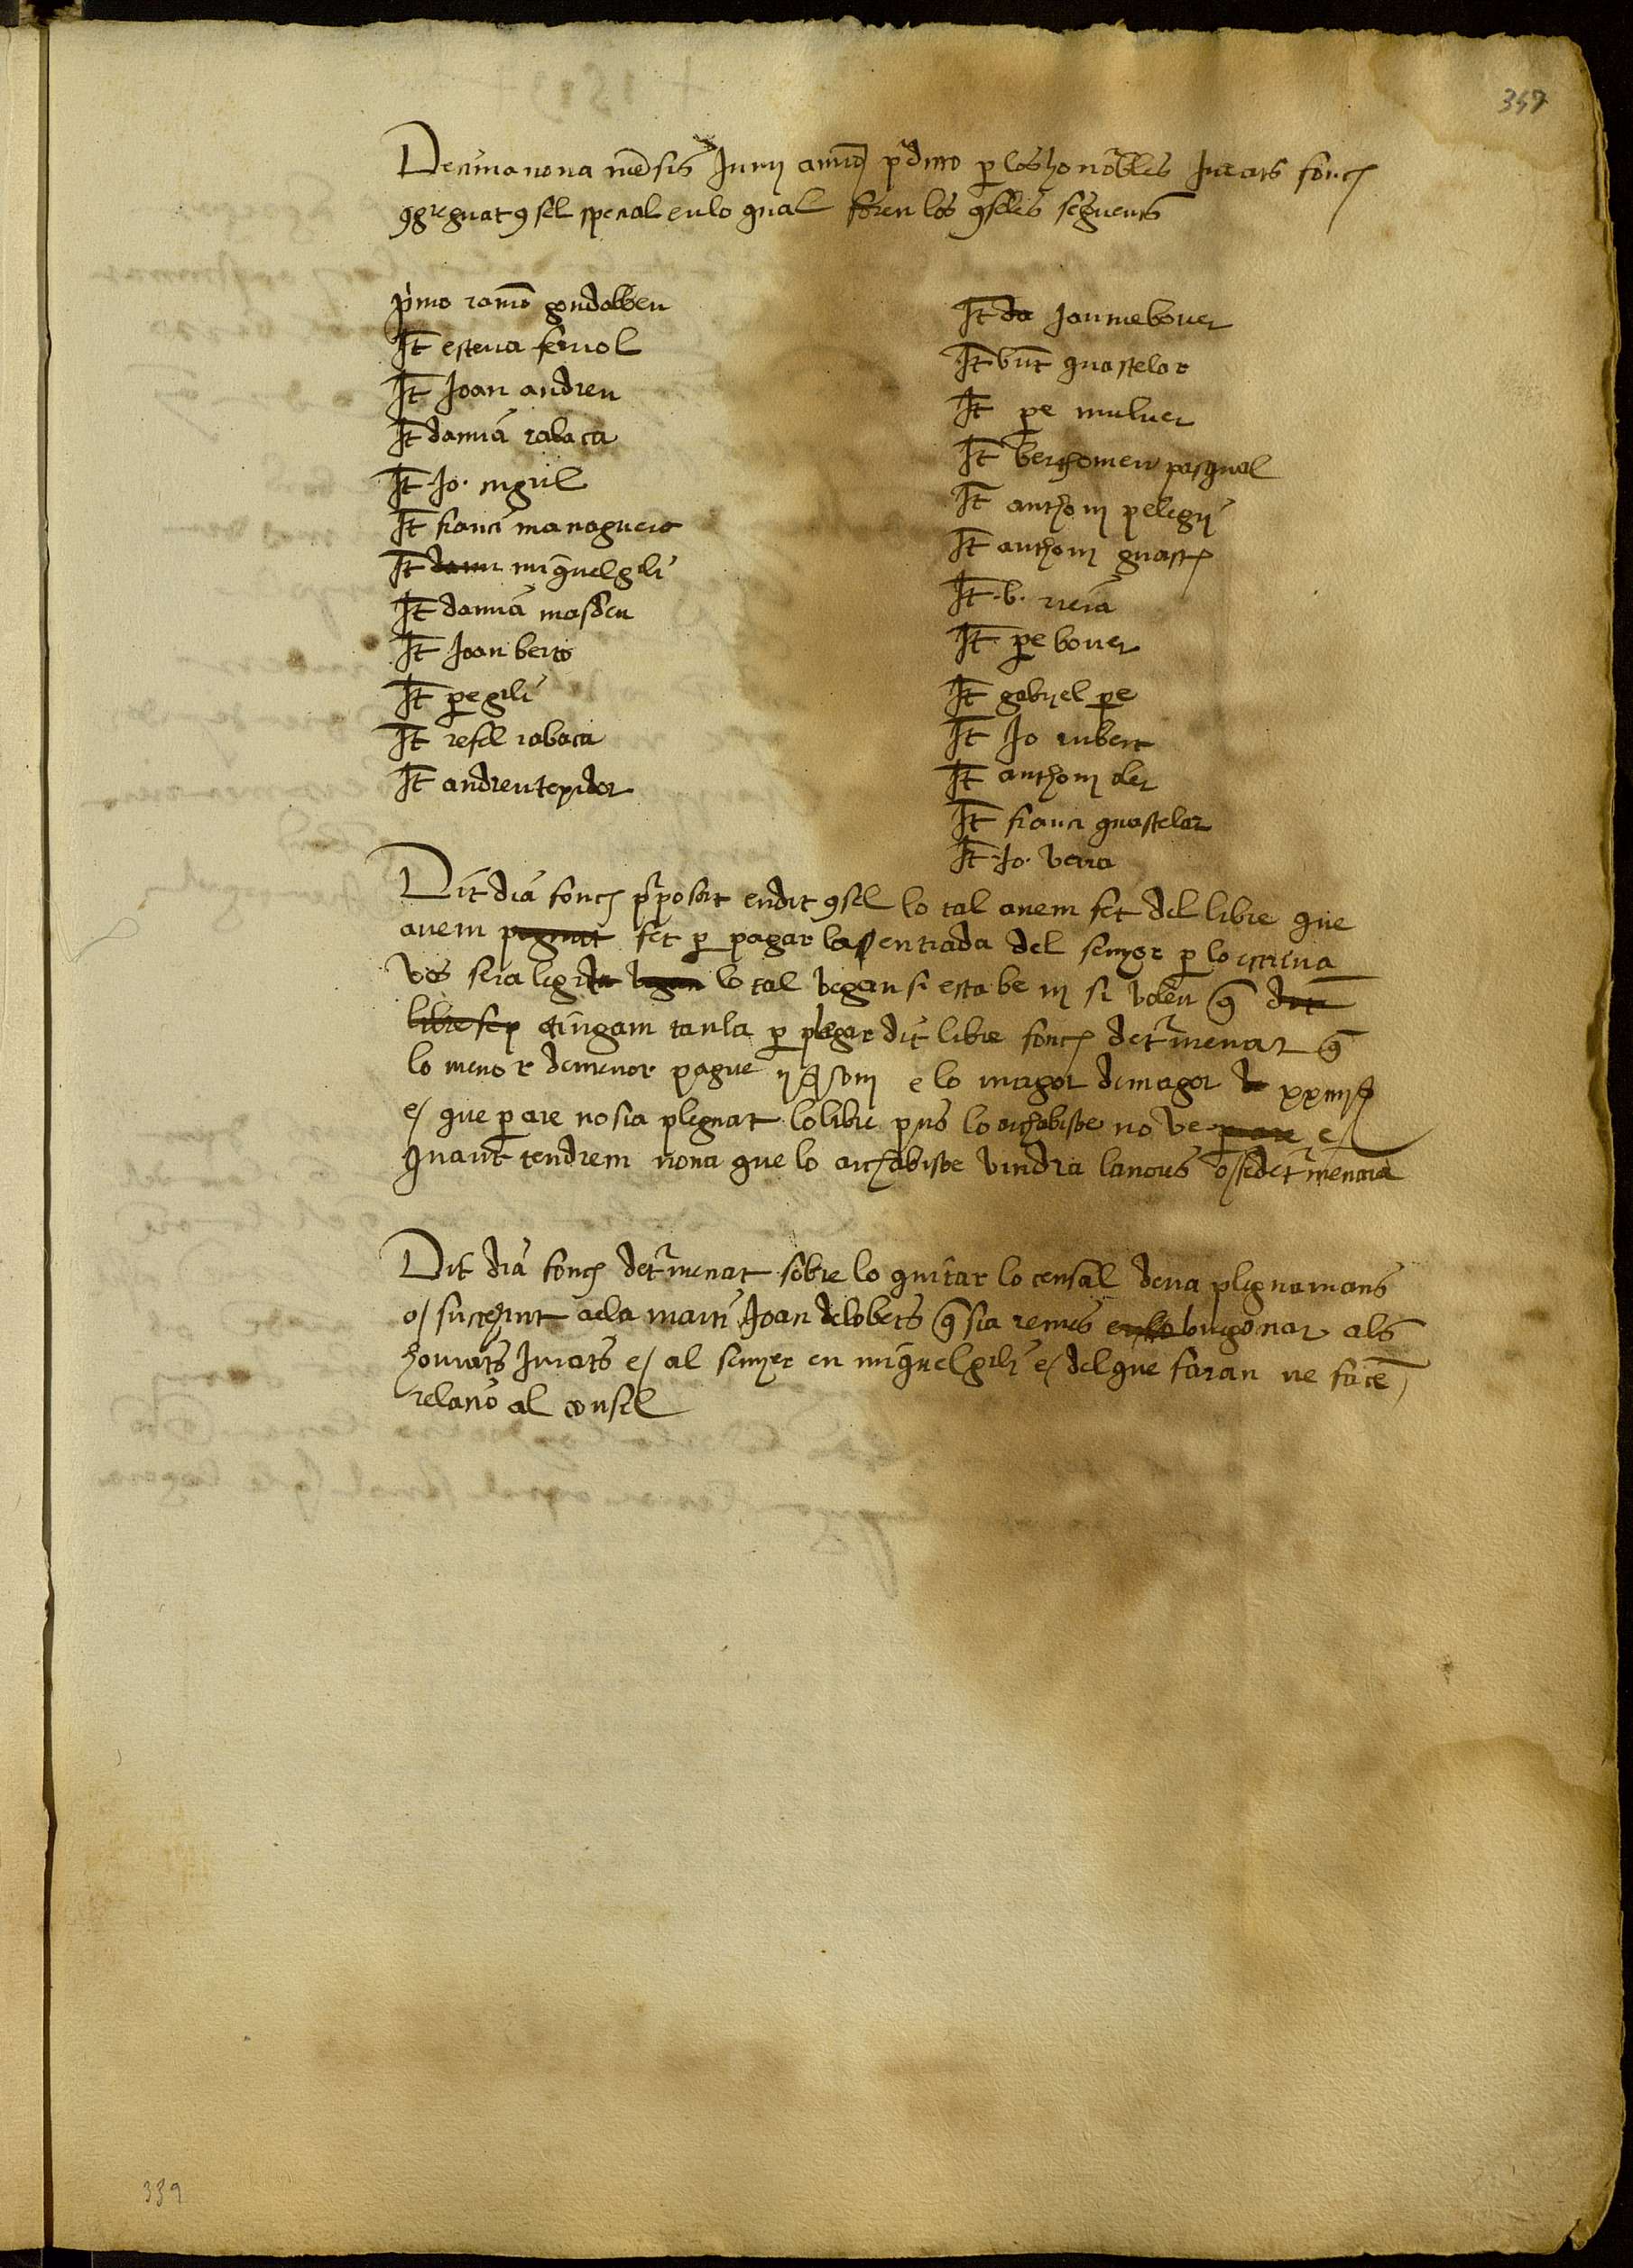 347
Decimanona mẽsis Junij anno p̃dicto per los honorables Jurats fonch
9greguat 9sell special en lo qual foren los 9sellers seguents
p̃mo ramõ gondalbeu
It esteva ferriol
It Joan andreu
It damiã rabaca
It Jo.
It franci managuera
It miquel gili
It damiã masdeu
It Joan berto
It pere gili
It refel rabaca
It andreu texidor
It Jaume bover
It bñt quastelar
It pe muluer
It berthomeu pasqual
It anthoni pelegri
It anthoni
It .b. riera
It pe bover
It gabriel pe
It Jo rubert
It anthoni oler
It franci quastelar
It Jo. vera
Dit dia fonch p̃posat en dit 9sell lo tal avem fet del libre que
avem fet per pagar la entrada del senyor per lo
vos sera legit lo tal vegen si esta be ni si volen q̃
tingam taula per plegar dit libre fonch det̃menat q̃
lo menor de menor pague e lo magor de magor
e que per are no sia pleguat lo libre pus lo archabisbe no ve e
quant tendrem nova que lo archabisbe vindra lanvors se det̃menara
Dit dia fonch det̃menat sobre lo quitar lo censal deva plegnamans
o a ela marti Joan delobets q̃ sia remes als
honrats Jurats e al senyer en miquel gili e del que faran ne facẽ
relacio al consell
339